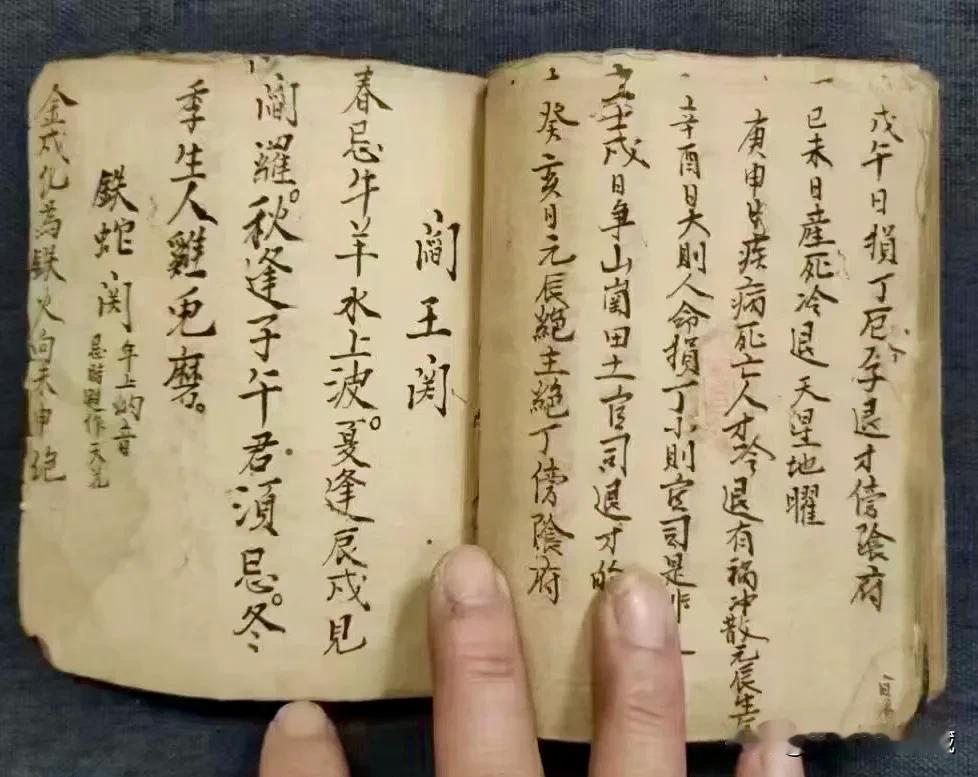 戊午日損丁厄孕退才傍陰府
冷
一
己未日產死冷退天罡地曜
庚申日疾病死亡人才冷退有禍冲散元辰生
辛酉日大則人命損丁小則官司是非
壬戌日争山崗田土官司退才
癸亥日元辰絕主絕丁傍陰府
閻王関
春忌牛羊水上波。夏逢辰戌見
閻羅。秋逢子午君須忌。冬
季生人雞兎磨。
鉄蛇関
年上納音
忌時
金戌化為鉄火向未申絕